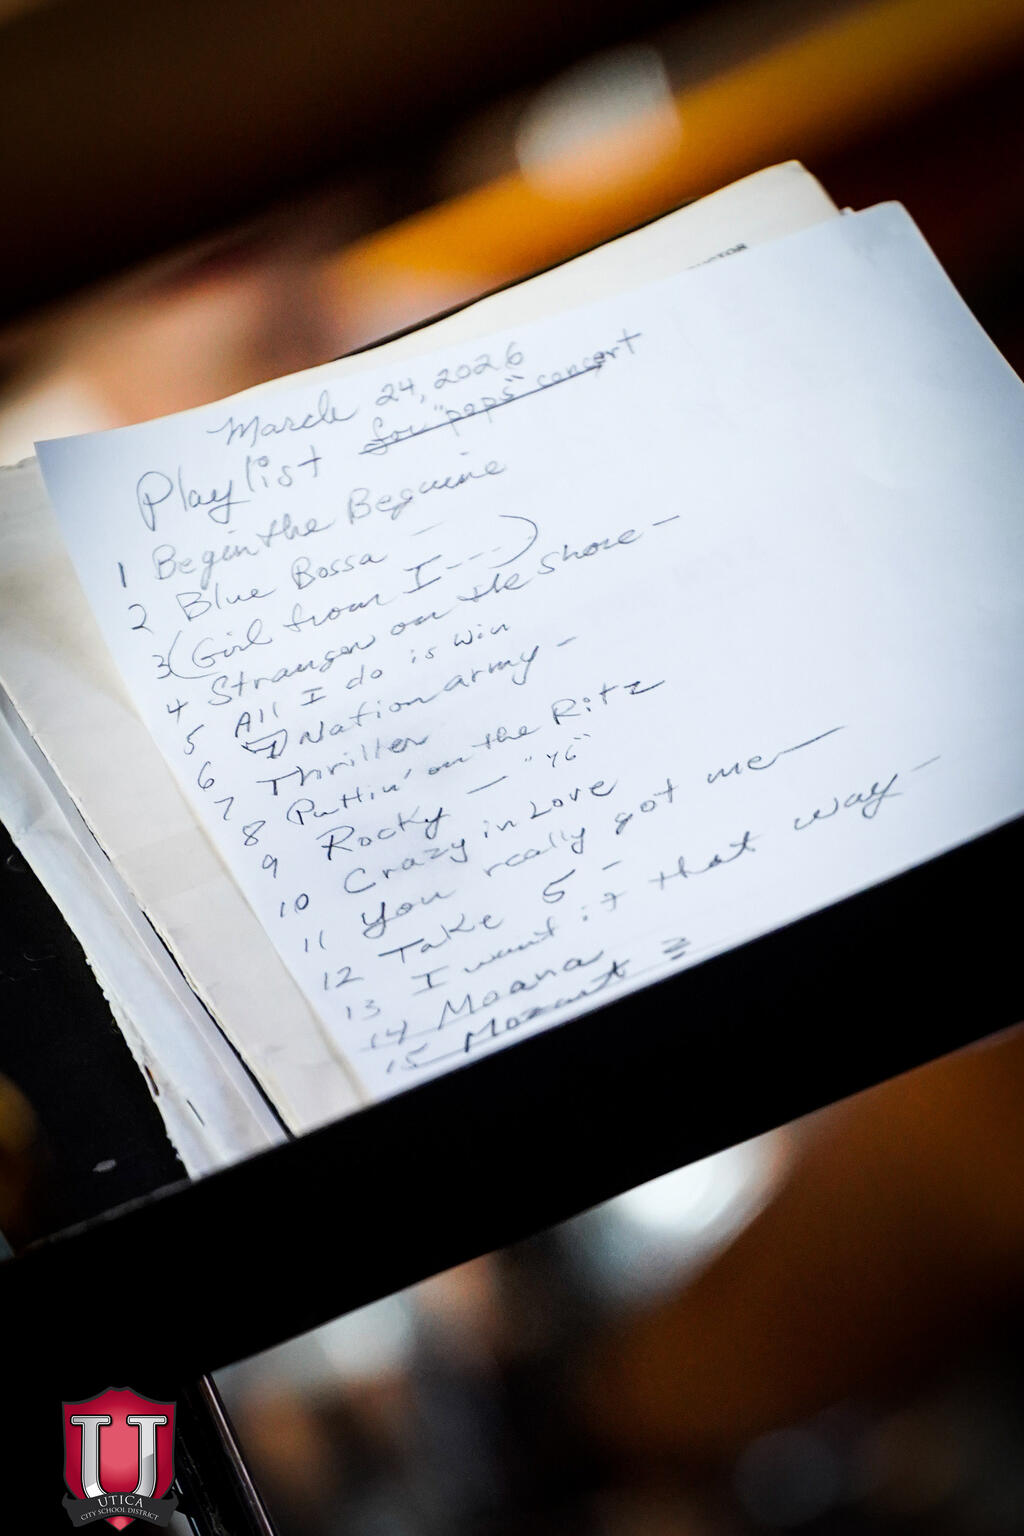 March 24, 2026
Playlist for "pops" concert
1 Begin the Beguine
2 Blue Bossa -
3 (Girl from I---)
4 Stranger on the Shore -
5 All I do is win
6 7 Nation army -
7 Thriller
8 Puttin' on the Ritz
9 Rocky - "76"
10 Crazy in Love
11 You really got me -
12 Take 5 -
13 I want it that way -
14 Moana
15 Mozart
U
UTICA
CITY SCHOOL DISTRICT